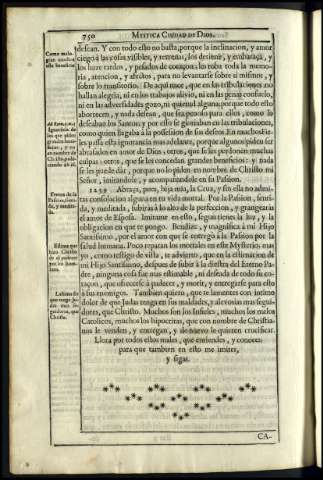 750 MYSTICA CIUDAD DE DIOS.
desean. Y con todo esto no basta, porque la inclinacion, y amor
ciego à las cosas visibles, y terrenas, los detiene, y embaraça, y
los haze tardos, y pesados de coraçon: les roba toda la memo-
ria, atencion, y afectos, para no levantarse sobre si mismos, y
sobre lo transitorio. De aqui nace, que en las tribulaciones no
hallan alegria, ni en los trabajos alivio, ni en las penas consuelo,
ni en las adversidades gozo, ni quietud alguna; porque todo esto
aborrecen, y nada desean, que sea penoso para ellos, como lo
deseaban los Santos; y por esso se gloriaban en las tribulaciones,
como quien llegaba à la possession de sus deseos. En muchos Fie-
les passa esta ignorancia mas adelante, porque algunos piden ser
abrasados en amor de Dios: otros, que se les perdonen muchas
culpas: otros, que se les concedan grandes beneficios: y nada
se les puede dàr, porque no lo piden en nombre de Christo mi
Señor, imitandole, y acompañandole en su Passion.
1259 Abraça, pues, hija mia, la Cruz, y sin ella no admi-
tas consolacion alguna en tu vida mortal. Por la Passion, senti-
da, y meditada, subiràs à lo alto de la perfeccion, y grangearàs
el amor de Esposa. Imitame en esto, segun tienes la luz, y la
obligacion en que te pongo. Bendize, y magnifica à mi Hijo
Santissimo, por el amor con que se entregò à la Passion por la
salud humana. Poco reparan los mortales en este Mysterio, mas
yo, como testigo de vista, te advierto, que en la estimacion de
mi Hijo Santissimo, despues de subir à la diestra del Eterno Pa-
dre, ninguna cosa fue mas estimable, ni deseada de todo su co-
raçon, que ofrecerse à padecer, y morir, y entregarse para esto
à sus enemigos. Tambien quiero, que te lamentes con intimo
dolor de que Judas tenga en sus maldades, y alevosias mas segui-
dores, que Christo. Muchos son los Infieles, muchos los malos
Catolicos, muchos los hipocritas, que con nombre de Christia-
nos le venden, y entregan, y de nuevo le quieren crucificar.
Llora por todos estos males, que entiendes, y conoces:
para que tambien en esto me imites,
y sigas.
CA-